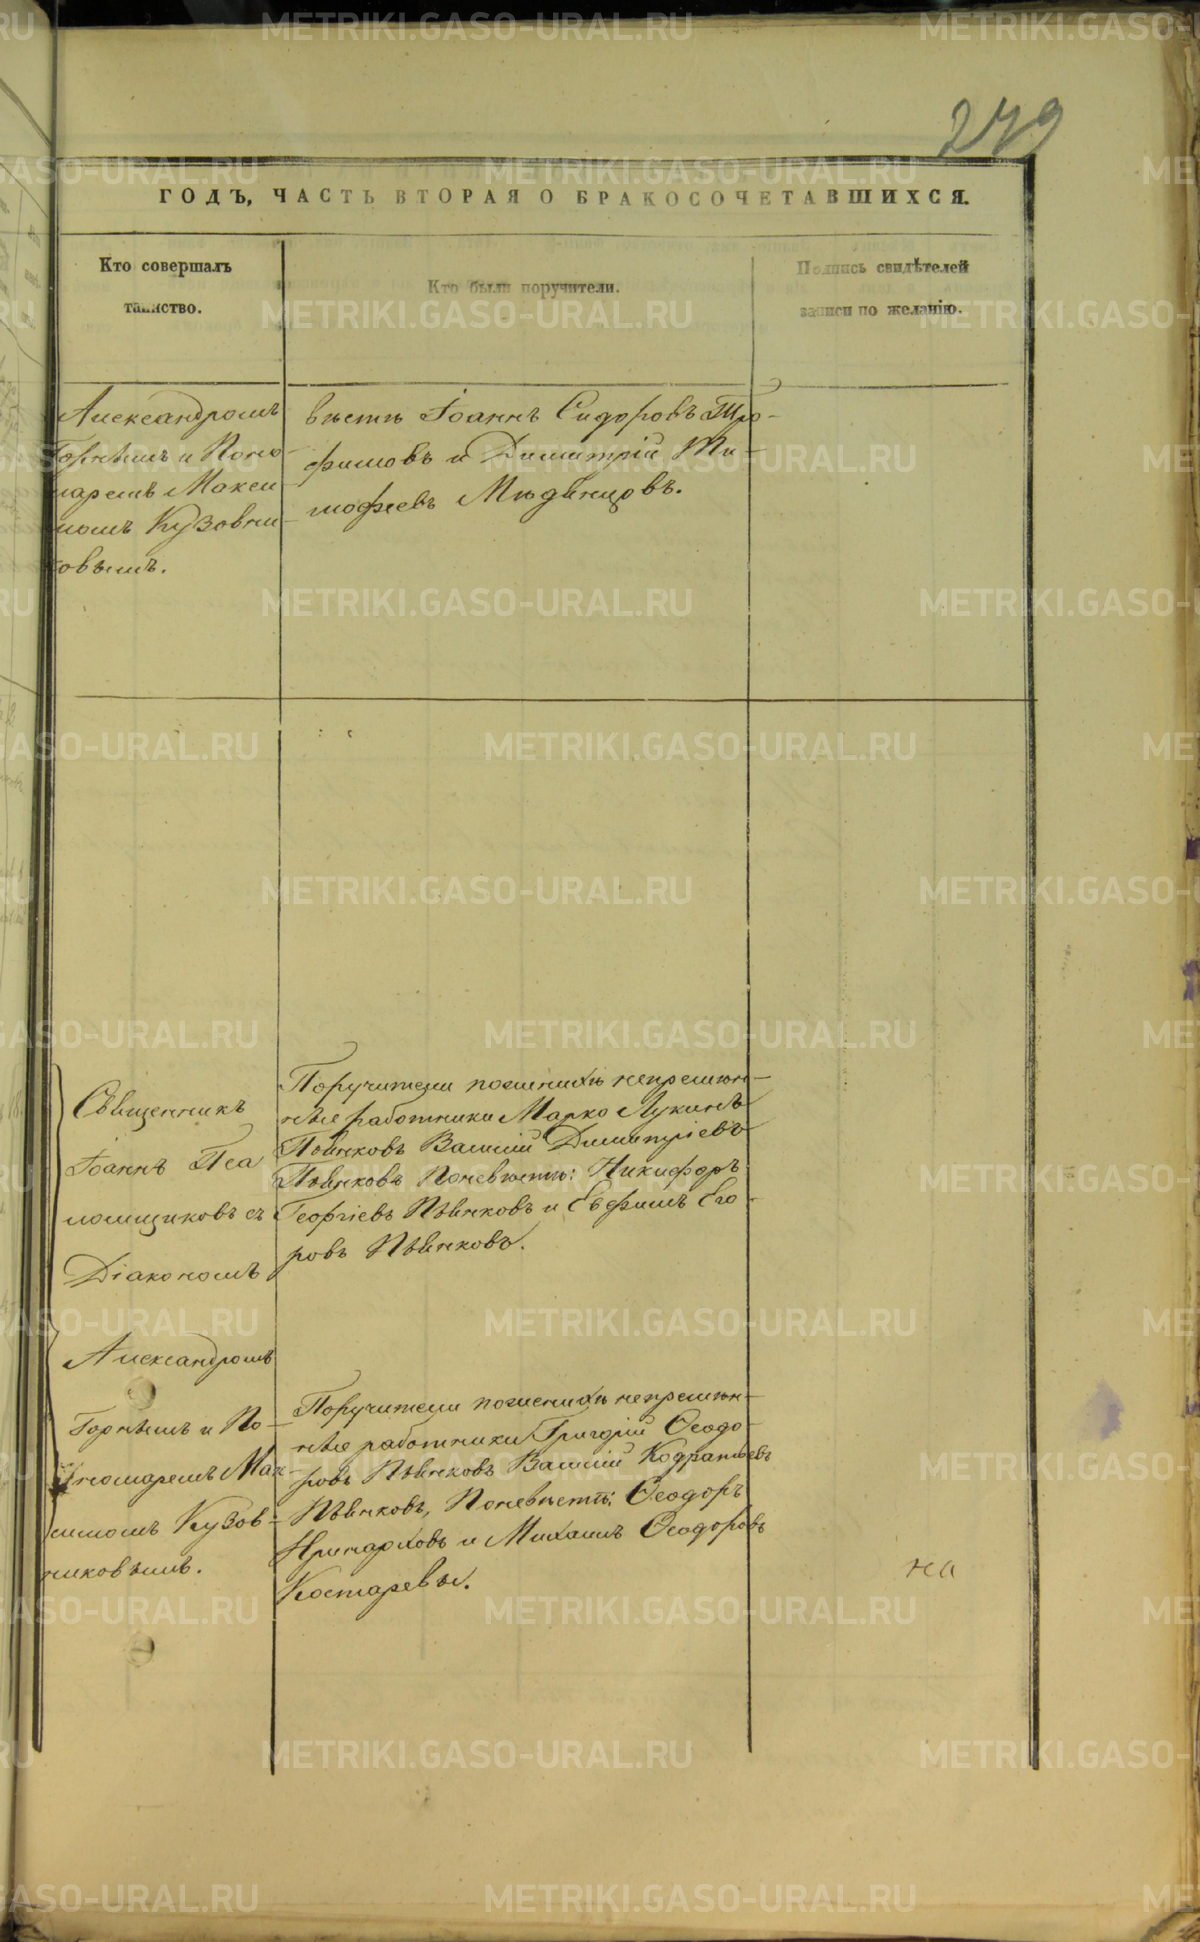 279
ГОДЪ, ЧАСТЬ ВТОРАЯ О БРАКОСОЧЕТАВШИХСЯ.
Кто совершалъ
таинство.
Кто были поручители.
Подпись свидѣтелей
записи по желанію.
Александромъ
Горнымъ и Поно-
маремъ Макси-
момъ Кузовни-
ковымъ.
вѣстѣ Іоаннъ Сидоровъ Тро-
фимовъ и Димитрій Ти-
мофеевъ Мѣдвѣнцовъ.
Священникъ
Іоаннъ Пса
ломщиковъ съ
Діакономъ
Александромъ
Горнымъ и По-
номаремъ Мак-
симомъ Кузов-
никовымъ.
Поручители поженихѣ непремѣн-
ные работники Марко Лукинъ
Пѣвнковъ Василій Димитріевъ
Пѣвнковъ Поневѣстѣ: Никифоръ
Георгіевъ Пѣвнковъ и Ефимъ Его-
ровъ Пѣвнковъ.
Поручители поженихѣ непремѣн-
ные работники Григорій Ѳеодо-
ровъ Пѣвнковъ Василій Кодратьевъ
Пѣвнковъ, Поневѣстѣ: Ѳеодоръ
и Михаилъ Ѳеодоровъ
Костаревы.
на
METRIKI.GASO-URAL.RU